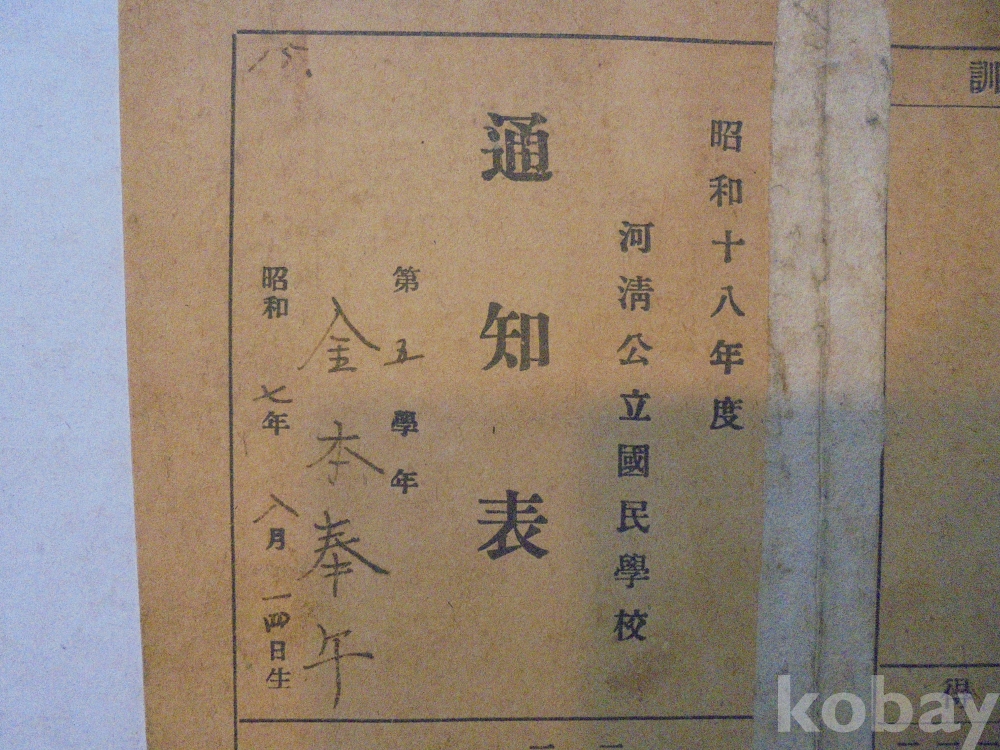 訓
昭和十八年度
河淸公立國民學校
通知表
第五學年
金本奉午
昭和七年八月一四日生
15.
kobay